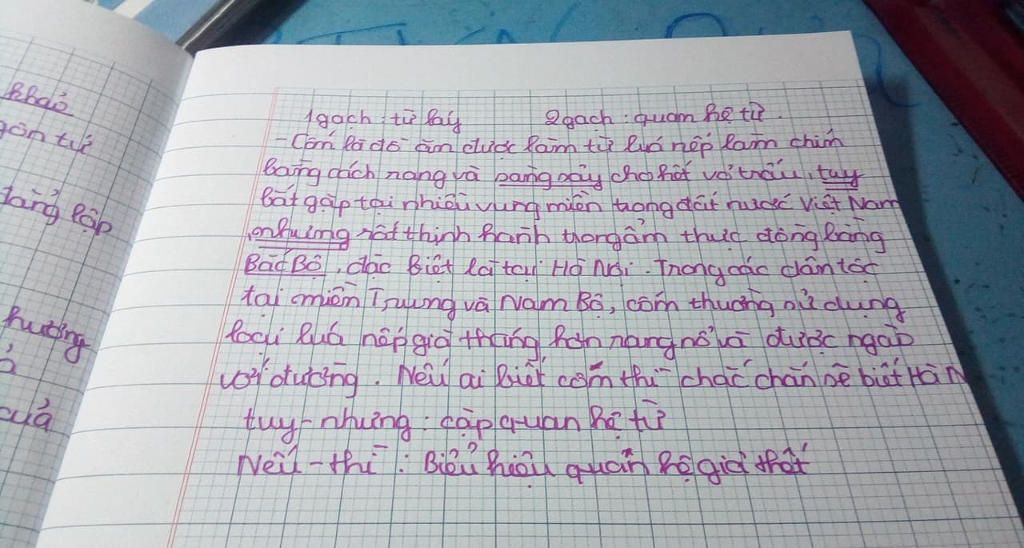 khảo
tảng lập
hướng
của
1gạch : từ láy 2gạch : quan hệ từ.
- Cốm là đồ ăn được làm từ lúa nếp làm chín
bằng cách rang và sàng sảy cho hết vỏ trấu, tuy
bắt gặp tại nhiều vùng miền trong đất nước Việt Nam
nhưng rất thịnh hành trong ẩm thực đồng bằng
Bắc Bộ, đặc biệt là tại Hà Nội. Trong các dân tộc
tại miền Trung và Nam Bộ, cốm thường sử dụng
loại lúa nếp già tháng hơn rang nổ và được ngào
với đường. Nếu ai biết cốm thì chắc chắn sẽ biết Hà N
tuy-nhưng : cặp quan hệ từ
Nếu-thì : Biểu hiệu quan hệ giả thiết